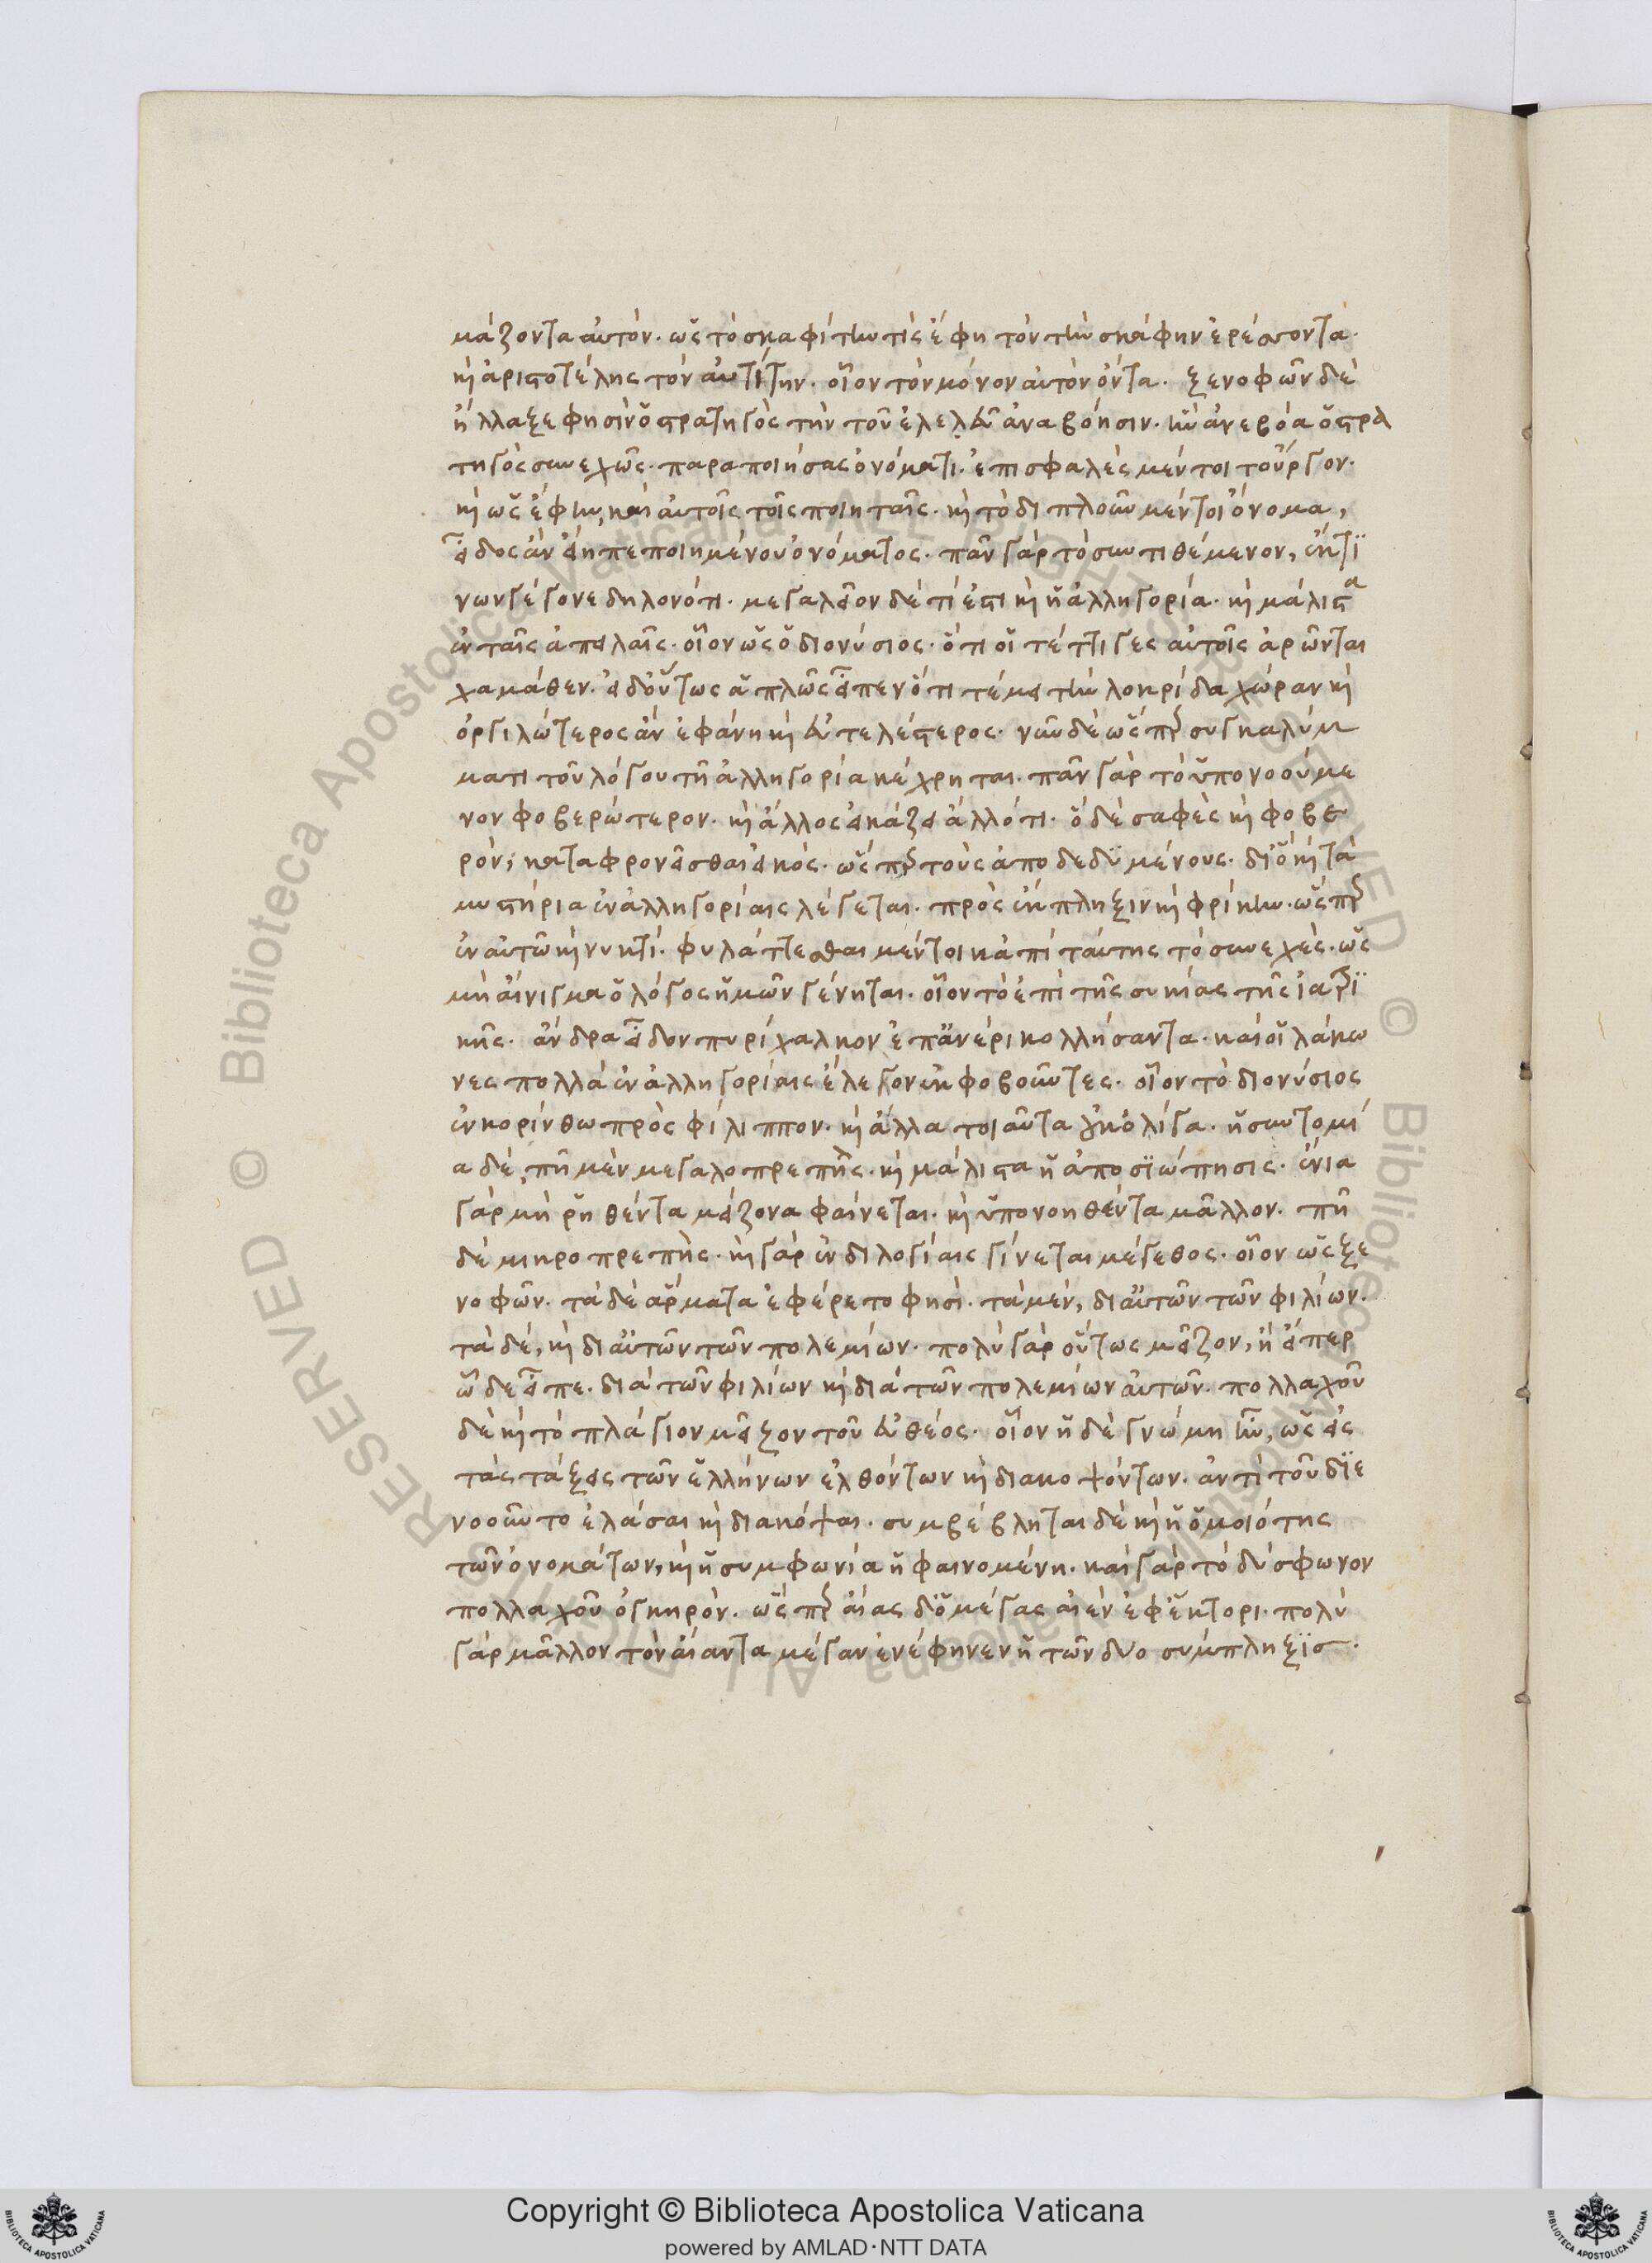 μάζοντα αὐτόν. ὡς τὸ σκαφίτην τὶς ἔφη τὸν τὴν σκάφην ἐρέσσοντα.
κὶ ἀριστοτέλης τὸν αὐτίτην. οἷον τὸν μόνον αὐτὸν ὄντα. ξενοφῶν δὲ
ἤλλαξε φησὶν ὁ στρατηγὸς τὴν τοῦ ἐλελεῦ ἀναβόησιν. ἦν ἀνεβόα ὁ στρα
τηγὸς συνεχῶς. παραποιήσας ὀνόματι. ἐπισφαλὲς μέν τοι τοὖργον.
κὶ ὡς ἔφην, καὶ αὐτοῖς τοῖς ποιηταῖς. κὶ τὸ διπλοῦν μέντοι ὄνομα,
εἶδος ἂν εἴη πεποιημένου ὀνόματος. πᾶν γὰρ τὸ συντιθέμενον, ἔκ τι
νων γέγονε δηλονότι. μεγαλεῖον δέ τί ἐστι κὶ ἡ ἀλληγορία. κὶ μάλιστα
ἐν ταῖς ἀπειλαῖς. οἷον ὡς ὁ διονύσιος. ὅτι οἱ τέττιγες αὐτοῖς ἄρωνται
χαμάθεν. εἰ δ' οὕτως ἁπλῶς εἶπεν ὅτι τέμει τὴν λοκρίδα χώραν κὶ
ὀργιλώτερος ἂν ἐφάνη κὶ εὐτελέστερος. νῦν δὲ ὥσπερ συγκαλύμ
ματι τοῦ λόγου τῆ ἀλληγορία κέχρηται. πᾶν γὰρ τὸ ὑπονοούμε
νον φοβερώτερον. κὶ ἄλλος εἰκάζει ἄλλό τι. ὃ δὲ σαφὲς κὶ φοβε
ρόν, καταφρονεῖσθαι εἰκός. ὥσπερ τοὺς ἀποδεδυμένους. διὸ κὶ τὰ
μυστήρια ἐν ἀλληγορίαις λέγεται. πρὸς ἔκπληξιν κὶ φρίκην. ὥσπερ
ἐν αὐτῶ κὶ νυκτί. φυλάττεσθαι μέντοι κἀπὶ ταύτης τὸ συνεχές. ὡς
μὴ αἴνιγμα ὁ λόγος ἡμῶν γένηται. οἷον τὸ ἐπὶ τῆς συκίας τῆς ἰατρι
κῆς. ἄνδρα εἶδον πυρίχαλκον ἐπ' ἀνέρι κολλήσαντα. καὶ οἱ λάκω
νες πολλὰ ἐν ἀλληγορίαις ἔλεγον ἐκφοβοῦντες. οἷον τὸ διονύσιος
ἐν κορίνθω πρὸς φίλιππον. κὶ ἄλλα τοιαῦτα οὐκ ὀλίγα. ἡ συντομί
α δέ, πῆ μὲν μεγαλοπρεπὴς. κὶ μάλιστα ἡ ἀποσιώπησις. ἔνια
γὰρ μὴ ῥηθέντα μείζονα φαίνεται. κὶ ὑπονοηθέντα μᾶλλον. πῆ
δὲ μικροπρεπής. κὶ γὰρ ἐν διλογίαις γίνεται μέγεθος. οἷον ὡς ξε
νοφῶν. τὰ δὲ ἅρματα ἐφέρετο φησὶ. τὰ μέν, δι' αὐτῶν τῶν φιλίων.
τὰ δέ, κὶ δι' αὐτῶν τῶν πολεμίων. πολὺ γὰρ οὕτως μεῖζον, ἢ εἴπερ
ὧδε εἶπε. διὰ τῶν φιλίων κὶ διὰ τῶν πολεμίων αὐτῶν. πολλαχοῦ
δὲ κὶ τὸ πλάγιον μεῖζον τοῦ εὐθέος. οἷον ἡ δὲ γνώμη ἦν, ὡς εἰς
τὰς τάξεις τῶν ἑλλήνων ἐλθόντων κὶ διακοψόντων. ἀντὶ τοῦ διε
νοοῦντο ἐλάσαι κὶ διακόψαι. συμβέβληται δὲ κὶ ἡ ὁμοιότης
τῶν ὀνομάτων, κὶ ἡ συμφωνία ἡ φαινομένη. καὶ γὰρ τὸ δύσφωνον
πολλαχοῦ ὀγκηρόν. ὥσπερ αἴας δ' ὁ μέγας αἰὲν ἐφ' ἕκτορι. πολὺ
γὰρ μᾶλλον τὸν αἴαντα μέγαν ἐνέφηνεν ἡ τῶν δύο σύμπληξις.
Copyright © Biblioteca Apostolica Vaticana
powered by AMLAD·NTT DATA